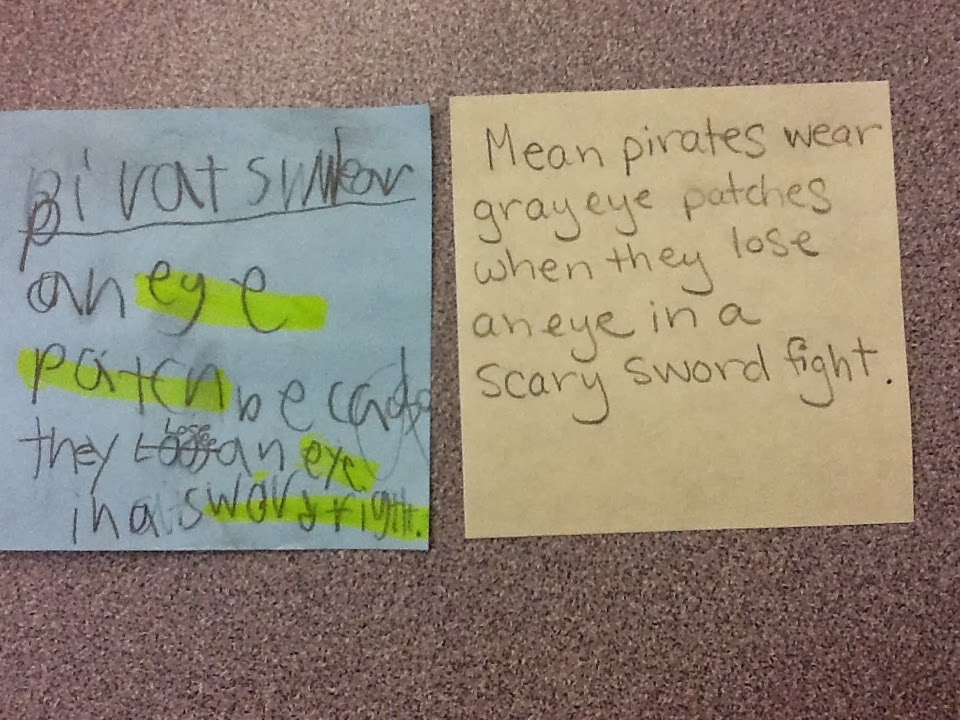 pirats wear
an eye
patch becaus
they lose an eye
in a sword fight.
Mean pirates wear
gray eye patches
when they lose
an eye in a
scary sword fight.